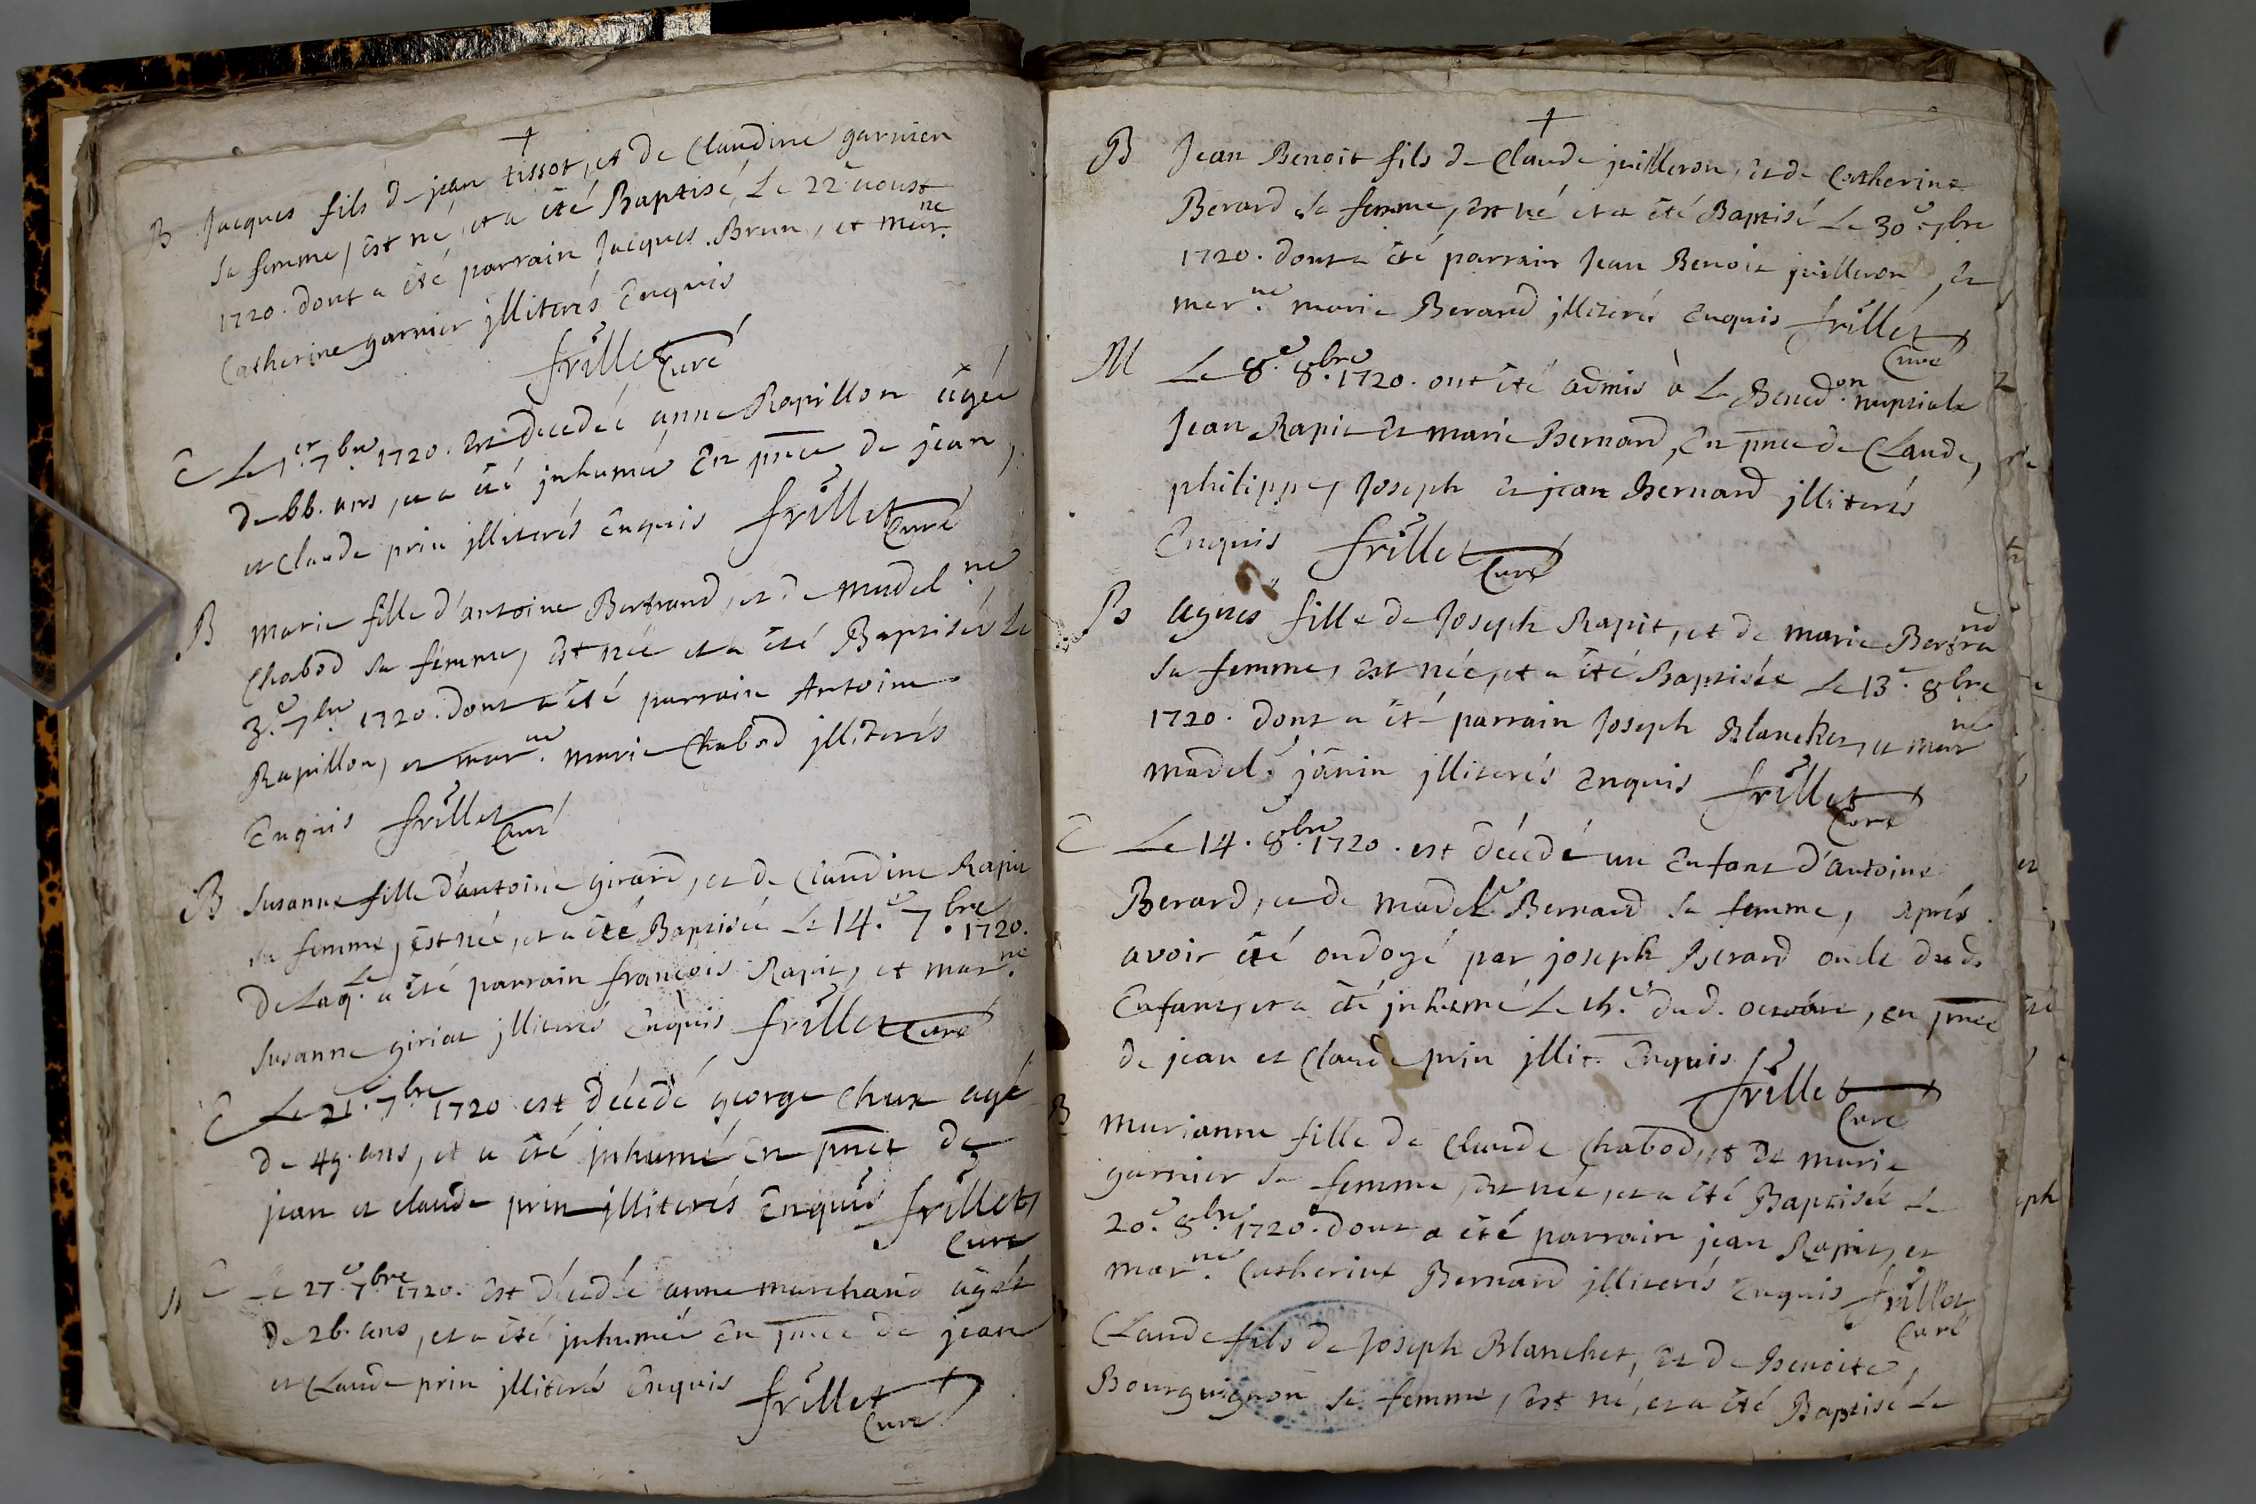 †
B Jacques fils de jean tissot, et de Claudine garnier
sa femme, est né, et a êté Baptisé, Le 22e aoust
1720. dont a êté parrain Jacques Brun, et mar.ne
Catherine garnier jlliterés Enquis
frillet Curé
C Le 1er 7bre 1720. est decedée anne Rapillon âgée
de 66. ans, et a êté jnhumée En pnce de jean,
et Claude prin jlliterés Enquis frillet Curé
B marie fille d'antoine Bertrand, et de madelne
Chabod sa femme, est née et a êté Baptisée Le
3.e 7bre 1720. dont a êté parrain Antoine
Rapillon, et marne. marie Chabod jlliterés
Enquis frillet Curé
B Susanne fille d'antoine girard, et de Claudine Rapit
sa femme, est née, et a êté Baptisée Le 14.e 7.bre 1720.
de Laq.le a êté parrain françois Rapit, et marne.
Susanne giriat jlliterés Enquis frillet Curé
C Le 21.e 7.bre 1720 est décédé george Chux agé
de 49. ans, et a êté jnhumé En pnce de
jean et claude prin jlliterés Enquis frillet
Curé
C Le 27.e 7bre 1720. est décédée anne marchand âgée
de 26. ans, et a êté jnhumée En pnce de jean
et Claude prin jlliterés Enquis frillet
Curé
†
B Jean Benoit fils de Claude juilleron, et de Catherine
Berard sa femme, est né et a êté Baptisé Le 30.e 7bre
1720. dont a êté parrain Jean Benoit juilleron, et
mar.ne marie Berard jlliterés Enquis frillet
Curé
M Le 8.e 8.bre 1720. ont êté admis à La Bened.on nuptiale
Jean Rapit et marie Bernard, En pnce de Claude,
philippe, Joseph et jean Bernard jlliterés
Enquis frillet Curé
B agnes fille de Joseph Rapit, et de marie Bertrand
sa femme, est née, et a êté Baptisée Le 13.e 8bre
1720. dont a êté parrain Joseph Blanchet, et marne
madel.e janin jlliterés Enquis frillet
Curé
C Le 14. 8.bre 1720. est décédé un Enfant d'antoine
Berard, et de madel.e Bernard sa femme, aprés
avoir êté ondoyé par joseph Berard oncle dud.
Enfant, et a êté jnhumé Le 15.e dud. octobre, en pnce
de jean et Claude prin jllit. Enquis
frillet
Curé
B marianne fille de Claude Chabod, et de marie
garnier sa femme, est née, et a êté Baptisée Le
20.e 8.bre 1720. dont a êté parrain jean Rapit, et
mar.ne Catherine Bernard jlliterés Enquis frillet
Curé
Claude fils de Joseph Blanchet, et de Benoite
Bourguignon sa femme, est né, et a êté Baptisé Le